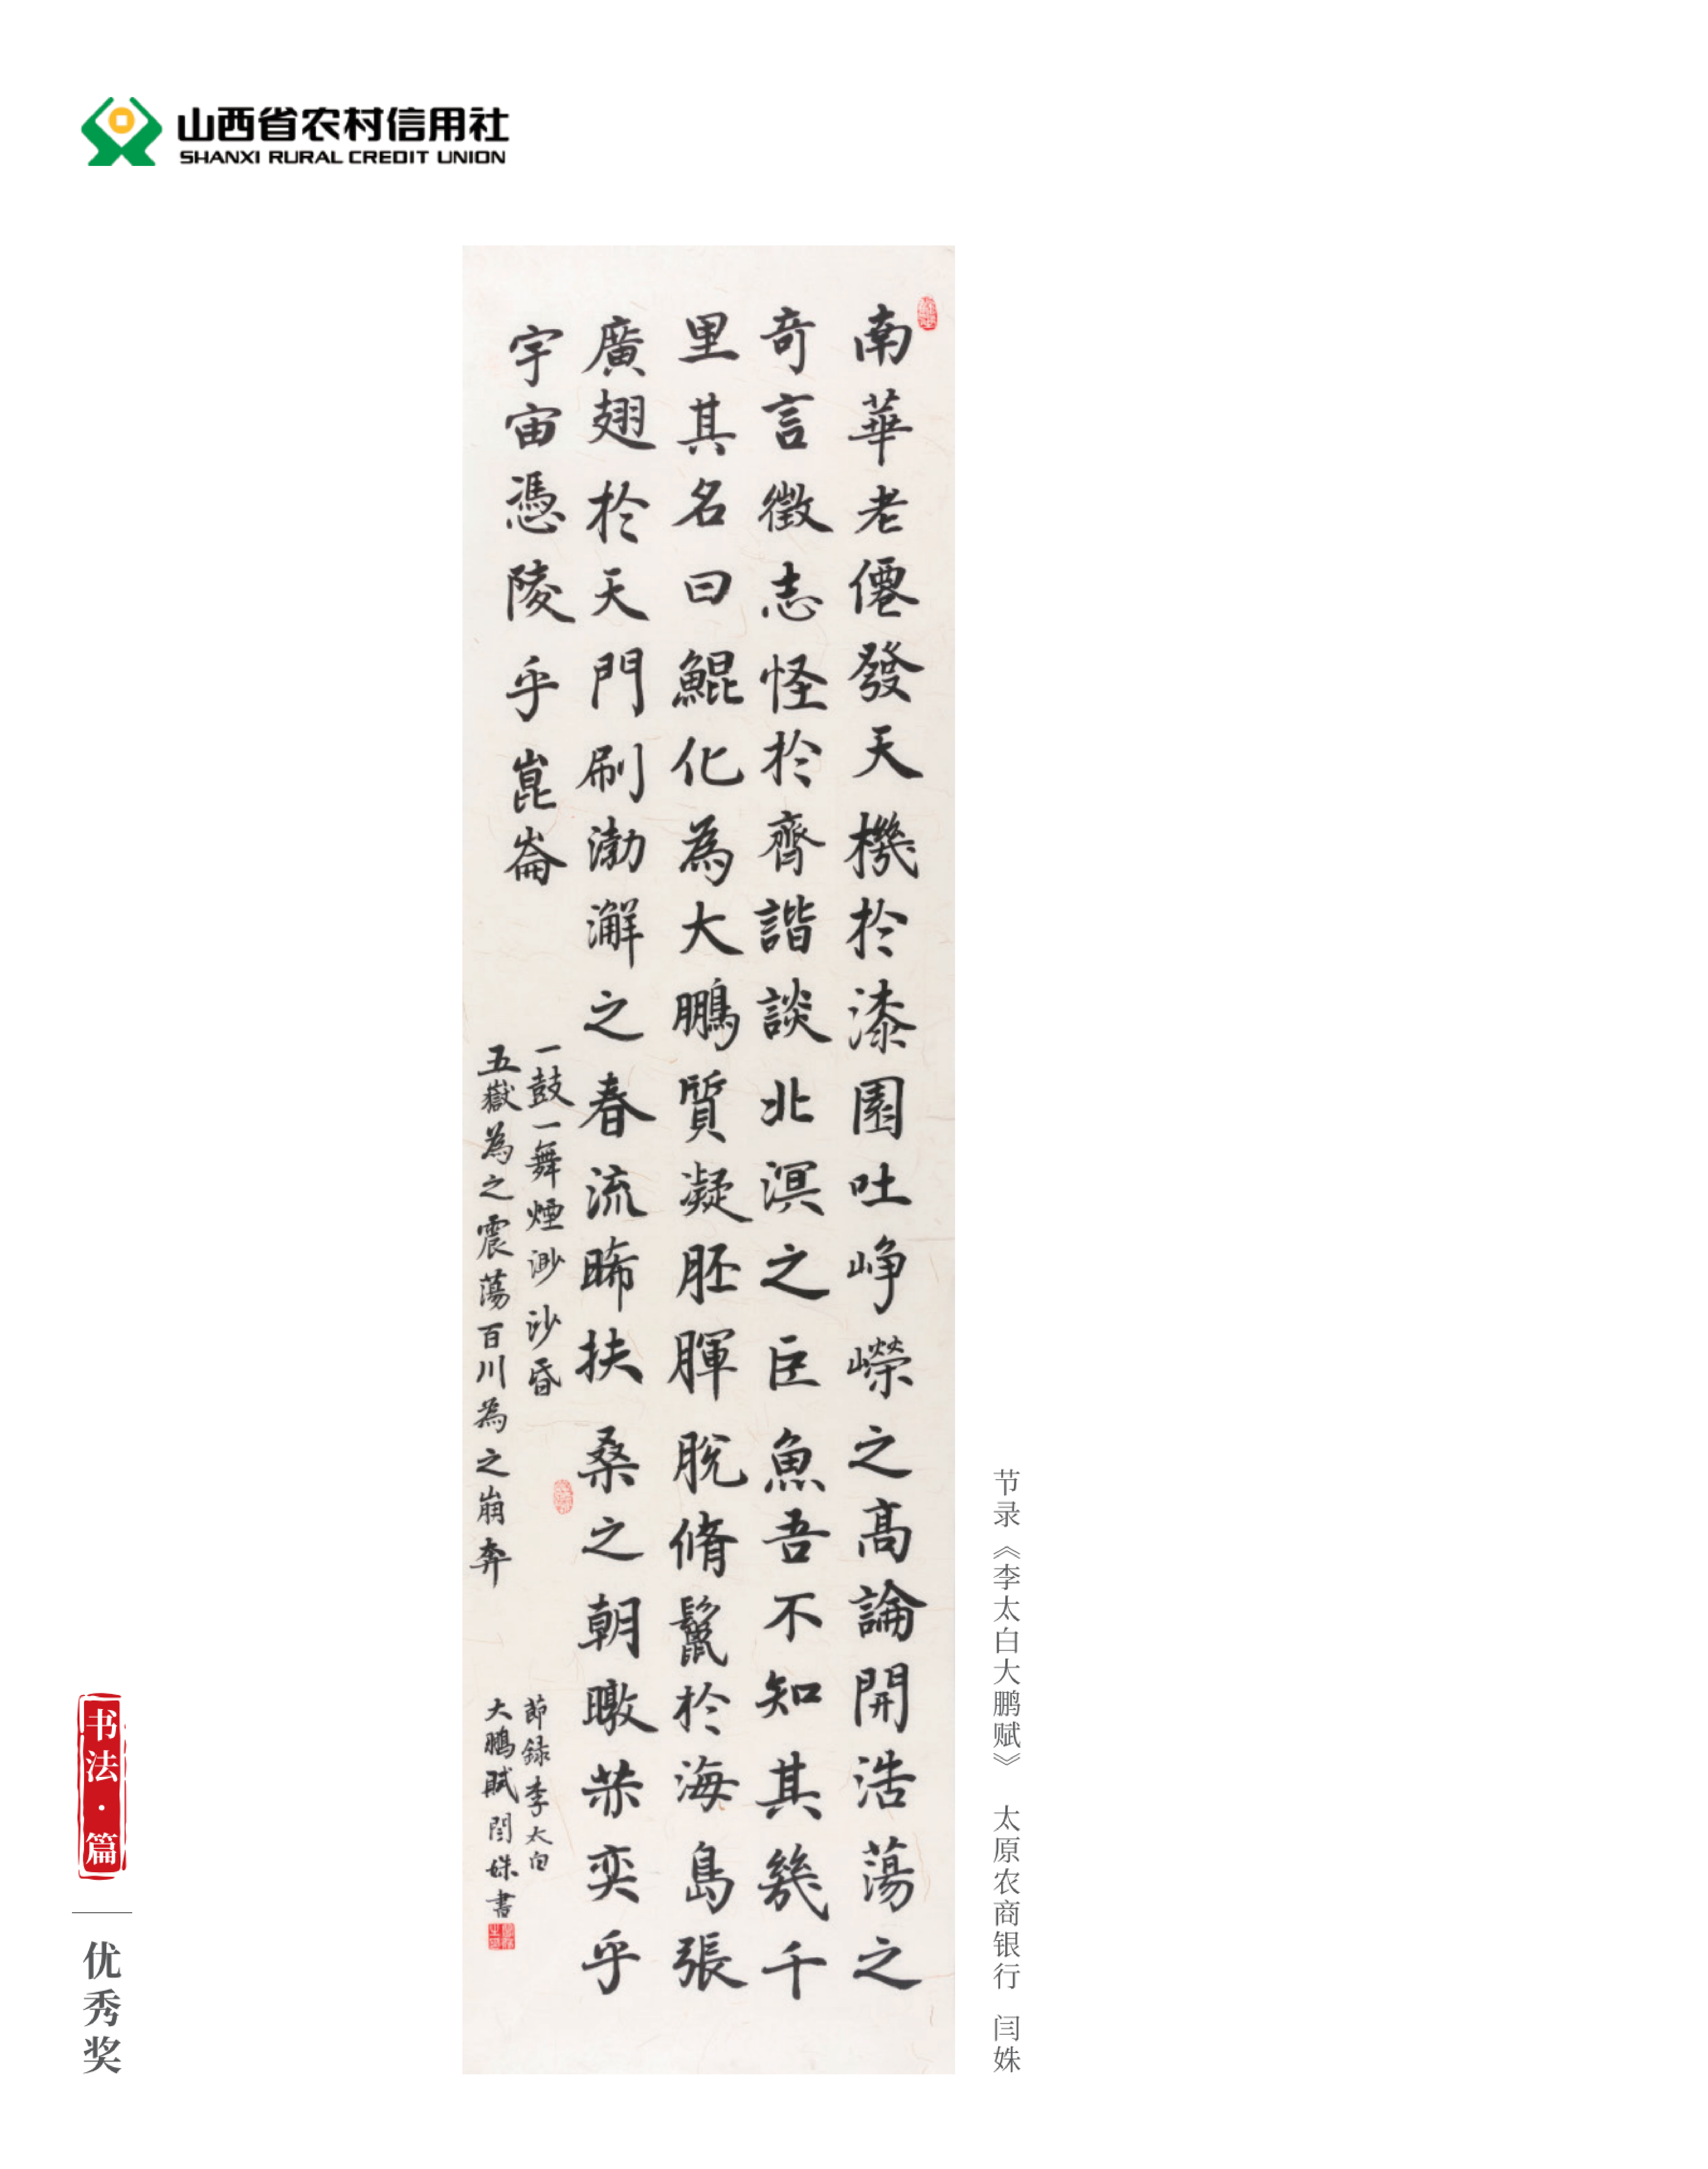 山西省农村信用社
SHANXI RURAL CREDIT UNION
南華老僊發天機於漆園吐崢嶸之高論開浩蕩之
奇言徵志怪於齊諧談北溟之巨魚吾不知其幾千
里其名曰鯤化為大鵬質凝胚腪脫脩鬣於海島張
廣翅於天門刷渤澥之春流晞扶桑之朝暾恭奕乎
宇宙憑陵乎崑崙
一鼓一舞煙渺沙昏
五嶽為之震蕩百川為之崩奔
節録李太白
大鵬賦閆姝書
节录《李太白大鹏赋》 太原农商银行 闫姝
书法·篇
优秀奖